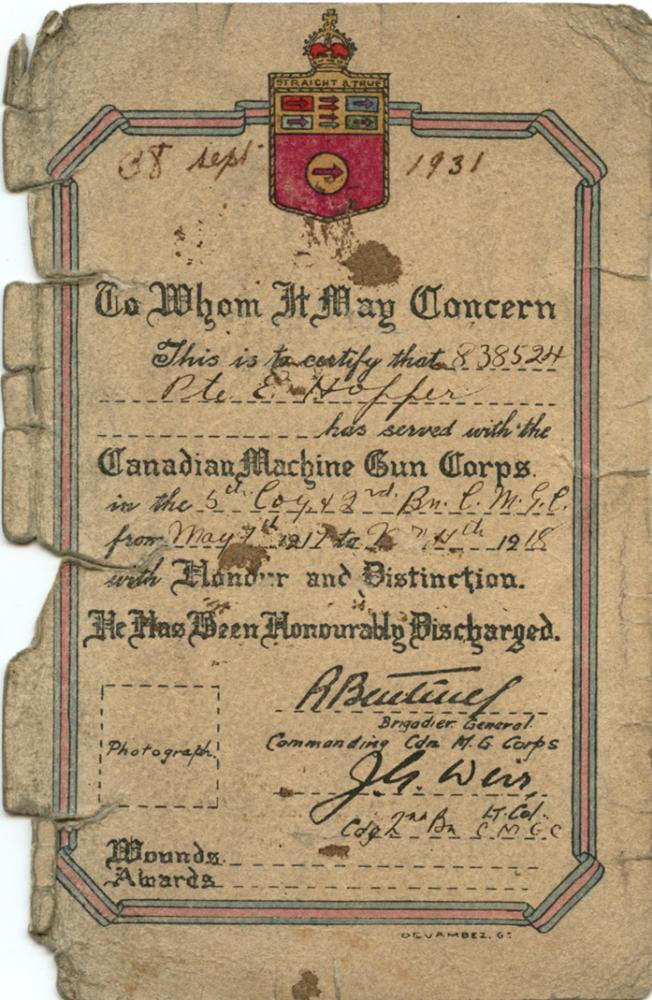 STRAIGHT & TRUE
sept 1931
To Whom It May Concern
This is to certify that 838524
Pte E Hoffer
has served with the
Canadian Machine Gun Corps.
in the 5th Coy & 2nd Bn. C. M. G. C.
from May 7th 1917 to 11th 1918
with Honour and Distinction.
He Has Been Honourably Discharged.
Brigadier General
Commanding Cdn M. G Corps
Photograph
J. G. Weir
Lt. Col.
Cdg 2nd Bn C M G C
Wounds
Awards
DEVAMBEZ. Gr